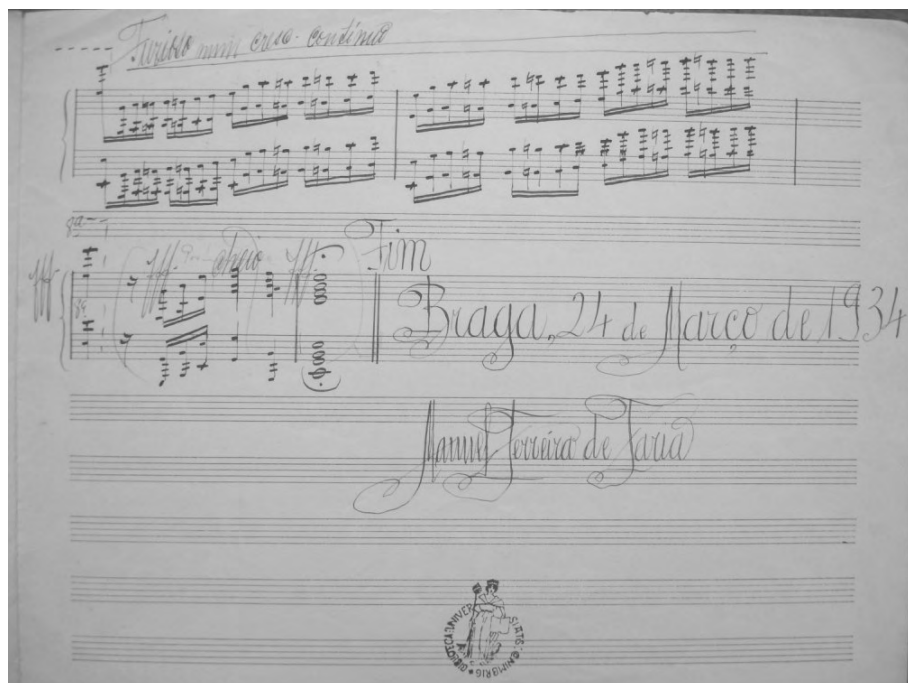 num cresc. contínuo
8ª
fff fff. cheio fff. Fim
8ª
Braga, 24 de Março de 1934
Manuel Ferreira de Faria